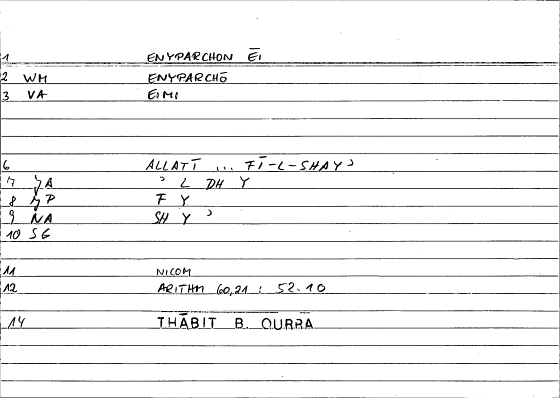 1 ENYPARCHON ĒI
2 WM ENYPARCHŌ
3 VA EIMI
6 ALLATĪ ... FĪ-L-SHAYʾ
7 ʾ L DH Y
8 F Y
9 NA SH Y ʾ
10 SG
11 NICOM
12 ARITHM 60,21 : 52.10
14 THĀBIT B. QURRA